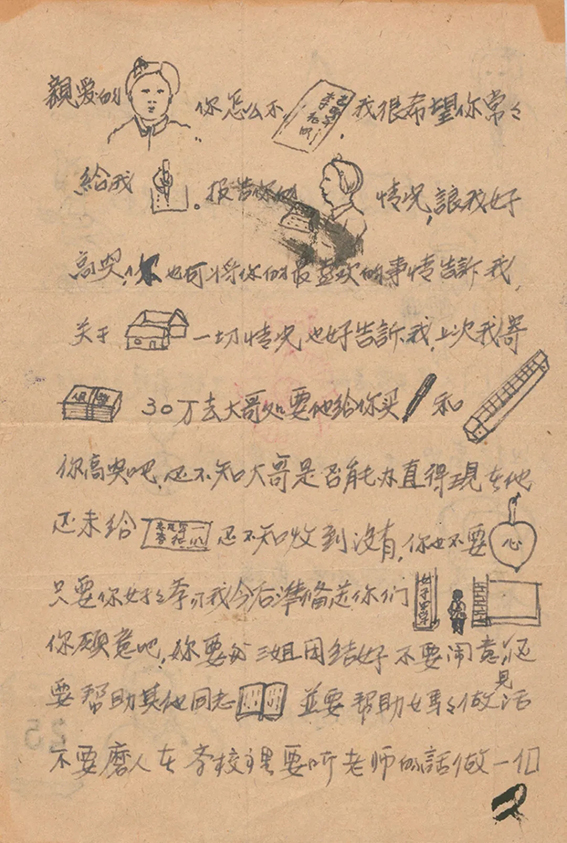 親爱的 你怎么不 我很希望你常々
給我 。报告你的 情况,讓我好
高兴,你也可将你的最喜欢的事情告訴我,
关于 一切情况也好告訴我,上次我寄
30万去大哥处要他給你买 和
你高兴吧,还不知大哥是否能办直得現在他
还未给 还不知收到没有,你也不要 心
只要你好好学习我今后準備送你们 女子中学
你願意吧,妳要与三姐团结好不要闹意见还
要帮助其他同志 並要帮助妈々做活
不要磨人在学校里要听老师的話做一个
2